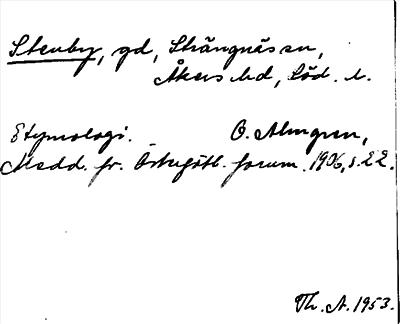 Stenby, gd, Strängnäs sn,
Åkers hd, Söd. l.
Etymologi. O. Almgren,
Medd. fr. Östergötl. fornm. 1906, s. 22.
Th. A. 1953.